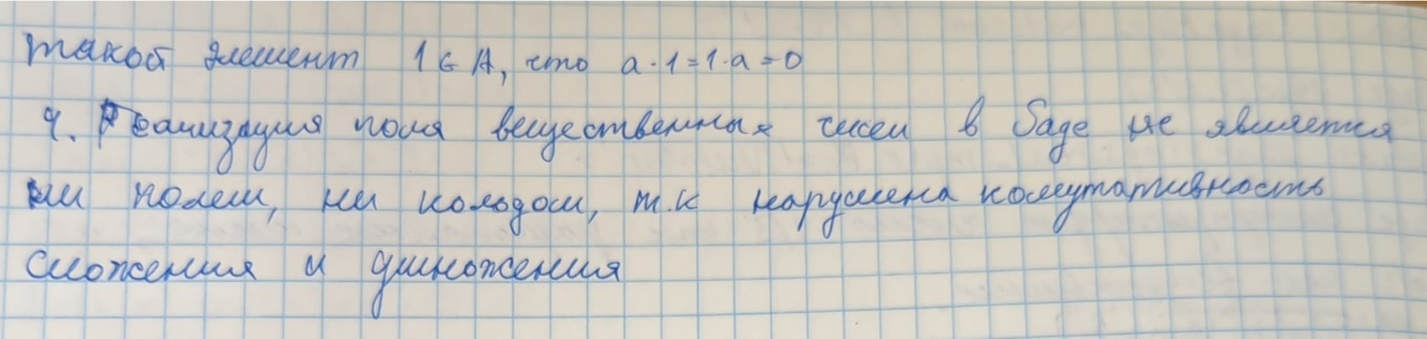 такой элемент 1 ∈ A, что a·1=1·a=0
4. Реализация поля вещественных чисел в Sage не является
ни полем, ни кольцом, т.к нарушена комутативность
сложения и умножения